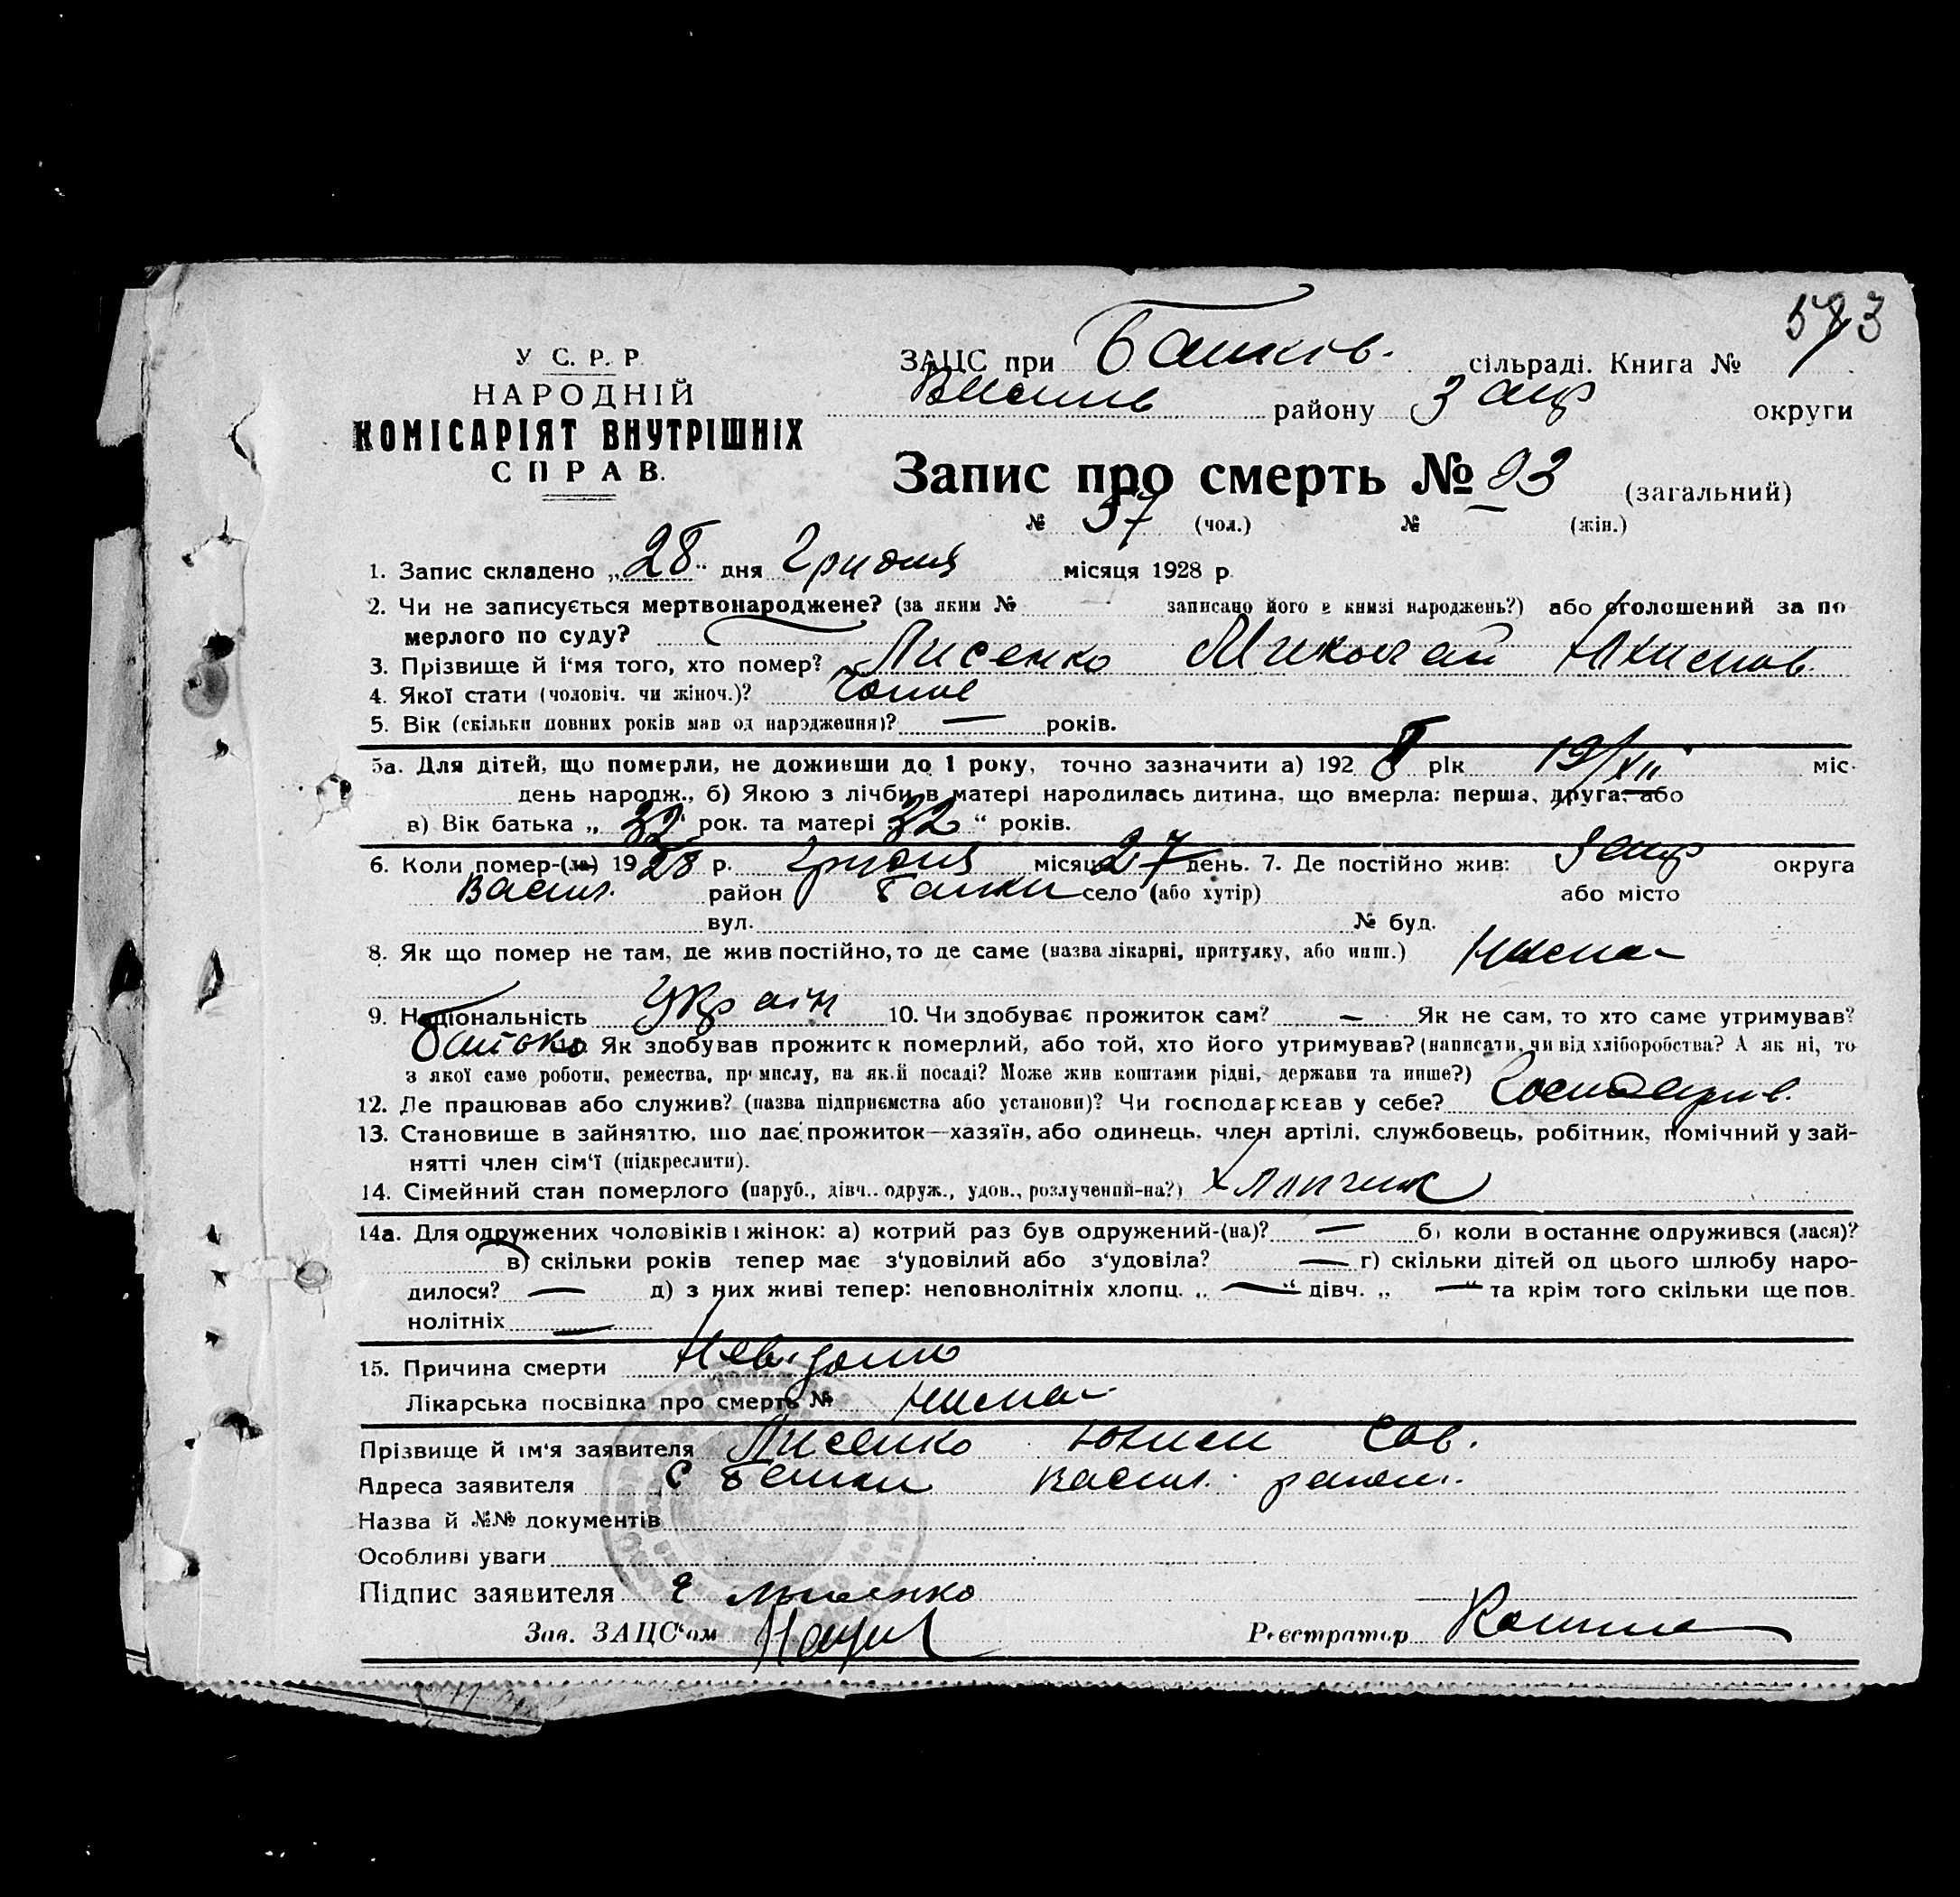 573
У С. Р. Р.
НАРОДНІЙ
КОМІСАРІЯТ ВНУТРІШНІХ
СПРАВ.
ЗАЦС при Башків. сільраді. Книга №
Васил район у Запр округи
Запис про смерть № 93 (загальний)
№ 57 (чол.) № — (жін.)
1. Запис складено „28" дня Грудня місяця 1928 р.
2. Чи не записується мертвонароджене? (за яким № записано його в книзі народжень?) або оголошений за по
мерлого по суду?
3. Прізвище й і'мя того, хто помер? Лисенко Миколай
4. Якої стати (чоловіч. чи жіноч.)?
5. Вік (скільки повних років мав од народження)? — років.
5а. Для дітей, що померли, не доживши до 1 року, точно зазначити а) 1928 рік 19/XII міс.
день народж., б) Якою з лічби в матері народилась дитина, що вмерла: перша, друга, або
в) Вік батька „32" рок. та матері „32" років.
6. Коли помер-(ла) 1928 р. грудня місяця 27 день. 7. Де постійно жив: Запр округа
Васил. район Балки село (або хутір) або місто
вул. № буд.
8. Як що помер не там, де жив постійно, то де саме (назва лікарні, притулку, або инш.) Нема
9. Національність Україн 10. Чи здобуває прожиток сам? — Як не сам, то хто саме утримував?
батько 11. Як здобував прожиток померлий, або той, хто його утримував? (написати, чи від хліборобства? А як ні, то
з якої саме роботи, ремества, промислу, на якій посаді? Може жив коштами рідні, держави та инше?)
12. Де працював або служив? (назва підприємства або установи)? Чи господарював у себе? Господарив.
13. Становище в зайняттю, що дає прожиток—хазяїн, або одинець, член артілі, службовець, робітник, помічний у зай-
нятті член сім'ї (підкреслити).
14. Сімейний стан померлого (паруб., дівч., одруж., удов., розлучений-на?) хлопчик
14а. Для одружених чоловіків і жінок: а) котрий раз був одружений-(на)? — б) коли в останнє одружився (лася)?
в) скільки років тепер має з'удовілий або з'удовіла? — г) скільки дітей од цього шлюбу наро-
дилося? — д) з них живі тепер: неповнолітніх хлопц. „ —" дівч. „ —" та крім того скільки ще пов.
нолітніх —
15. Причина смерти Невідомо
Лікарська посвідка про смерть № нема
Прізвище й ім'я заявителя Лисенко Юхим Сав.
Адреса заявителя с Балки Васил. район.
Назва й №№ документів
Особливі уваги
Підпис заявителя Є Лысенко
Зав. ЗАЦС'ом
Реєстратор